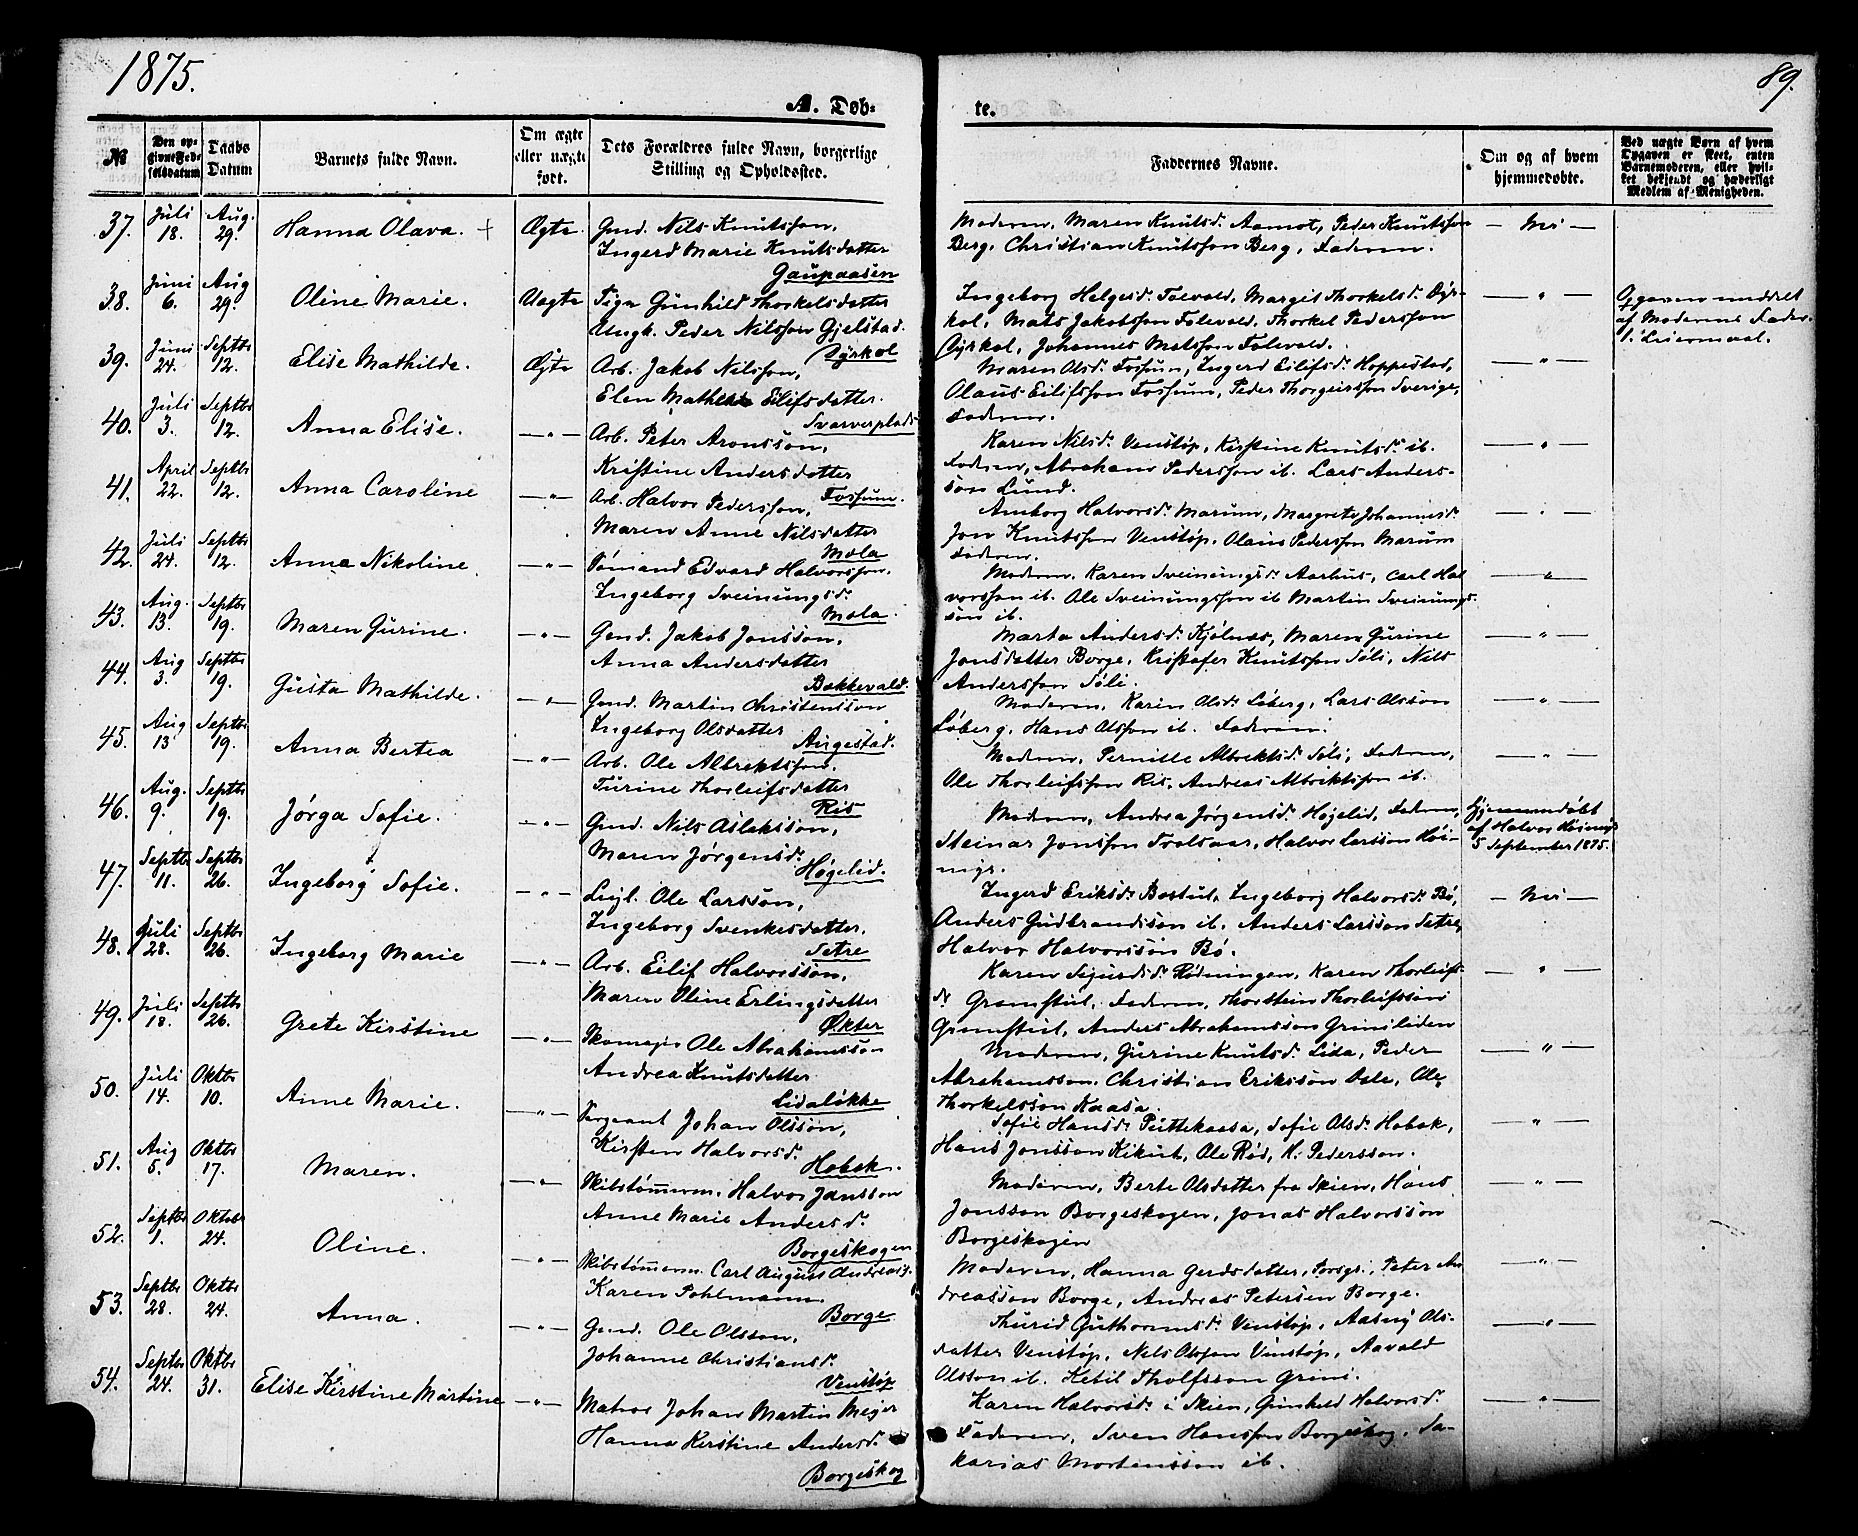 1875.
89.
A. Døb-
te.
№
Den opgivne Fødselsdatum
Daabs Datum
Barnets fulde Navn.
Om ægte eller uægte født.
Dets Forældres fulde Navn, borgerlige Stilling og Opholdssted.
Faddernes Navne.
Om og af hvem hjemmedøbt.
Ved uægte Børn af hvem Opgaven er skeet, enten Barnemoderen, eller hvilket bekjendt og hæderligt Medlem af Menigheden.
37. Juli 18. Aug. 29. Hanna Olava. Ægte. Gmd. Nils Knutsson,
Ingerd Marie Knutsdatter
Gaupaasen
Moderen, Maren Knutsd. Aamot, Peder Knutsson
Berg, Christian Knutsson Berg, Faderen.
— Nei —
38. Juni 6. Aug 29. Oline Marie. Uægte Pige Gunhild Thorkelsdatter
Ungk. Peder Nilsson Gjelstad.
Dyrkol
Ingeborg Helgesd. Folevald, Margit Thorkelsd. Dyr-
kol, Mats Jakobsson Folevald, Thorkel Pedersson
Dyrkol, Johannes Matsson Folevald.
— " —
Opgaven meddelt
af Moderens Fader.
1. Leiermaal.
39. Juni 24. Septbr 12. Elise Mathilde. Ægte Arb. Jakob Nilsson,
Elen Mathea Eilifsdatter.
Svarverplads
Maren Olsd. Fossum, Ingerd Eilifsd. Hoppestad,
Olaus Eilifsson Fossum, Peder Thorgeirsson Sverige,
Faderen.
— " —
40. Juli 3. Septbr 12. Anna Elise. — " — Arb. Peter Aronsson,
Kristine Andersdatter
Fossum.
Karen Nilsd. Venstøp, Kirstine Knutsd. ib.
Faderen, Abraham Pedersson ib. Lars Anders-
son Lund.
— " —
41. April 22. Septbr 12. Anna Caroline — " — Arb. Halvor Pedersson,
Maren Anne Nilsdatter
Mæla
Amborg Halvorsd. Marum, Margrete Johannesd.
Jon Knutsson Venstøp, Olaus Pedersson Marum
Faderen.
— " —
42. Juli 24. Septbr 12. Anna Nikoline. — " — Sømand Edvard Halvorsson.
Ingeborg Sveinungsd.
Mæla.
Moderen, Karen Sveinungsd. Aarhus, Carl Hal
vorsson ib. Ole Sveinungsson ib Martin Sveinungs-
son ib.
— " —
43. Aug. 13. Septbr 19. Maren Gurine. — " — Gmd. Jakob Jonsson,
Anna Andersdatter
Bakkevald.
Marta Andersd. Kjølnæs, Maren Gurine
Jonsdatter Borge, Kristofer Knutsson Soli, Nils
Andersson Soli.
— " —
44. Aug 3. Septbr 19. Gusta Mathilde. — " — Gmd. Martin Christensson
Ingeborg Olsdatter
Augestad.
Moderen, Karin Olsd. Løberg, Lars Olsson
Løberg, Hans Olsson ib. Faderen.
— " —
45. Aug 13 Septbr 19. Anna Bertea — " — Arb. Ole Albrektsson.
Turine Thorleifsdatter
Ris
Moderen, Pernille Albrektsd. Soli, Faderen,
Ole Thorleifsson Ris, Andreas Albrektsson ib.
— " —
46. Aug. 9. Septbr 19. Jørga Sofie. — " — Gmd. Nils Aslaksson,
Maren Jørgensd.
Høgelid.
Moderen, Andrea Jørgensd. Høgelid, Faderen,
Steinar Jonsson Tvalsaar, Halvor Larsson Høi-
nigs.
Hjemmedøbt
af Halvor Høinigs
5 September 1875.
47. Septbr 11. Septbr 26. Ingeborg Sofie. — " — Leil. Ole Larsson,
Ingeborg Svenkesdatter.
Setre
Ingerd Eriksd. Bøstul, Ingeborg Halvorsd. Bø,
Anders Gudbrandsson ib. Anders Larsson Setre,
Halvor Halvorsson Bø.
— Nei —
48. Juli 28. Septbr 26. Ingeborg Marie — " — Arb. Eilif Halvorsson,
Maren Oline Erlingsdatter
Økter
Karen Sjursd. Rødningen, Karen Thorleifs-
d. Gromstul, Faderen, Thorstein Thorleifsson
Gromstul, Anders Abrahamsson Grinileiden
— " —
49. Juli 18. Septbr 26. Grete Kirstine — " — Skomager Ole Abrahamsson
Andrea Knutsdatter
Lidaløkke
Moderen, Gurine Knutsd. Lida, Peder
Abrahamsson, Christian Eriksson Dale, Ole
Thorkelsson Kaasa.
— " —
50. Juli 14. Oktbr 10. Anne Marie. — " — Sergeant Johan Olsson,
Kirsten Halvorsd.
Hobæk.
Sofie Hansd. Puttekaasa, Sofie Olsd. Hobæk,
Hans Jonsson Kikut, Ole Rød, K. Pedersson.
— " —
51. Aug 5. Oktbr 17. Maren. — " — Skibstømmerm. Halvor Jansson
Anne Marie Andersd.
Borgeskogen
Moderen, Berte Olsdatter fra Skien, Hans
Jonsson Borgeskogen, Jonas Halvorsson
Borgeskogen
— " —
52. Septbr 1. Oktober 24. Oline. — " — Skibstømmerm. Carl August Andreass.
Karen Pohlmann.
Borge
Moderen, Hanna Gerdsdatter, Porsgr., Peter An
dreasson Borge, Andreas Petersen Borge.
— " —
53. Septbr 28. Oktbr 24. Anna. — " — Gmd. Ole Olsson,
Johanne Christiansd.
Venstøp
Thurid Guthormsd. Venstøp, Aasny Ols-
datter Venstøp, Nils Olsson Venstøp, Aavald
Olsson ib. Ketil Tholfsson Grini.
— " —
54. Septbr 24. Oktbr 31. Elise Kirstine Martine — " — Matros Johan Martin Meyer
Hanna Kirstine Andersd.
Borgeskog
Karen Halvorsd. i Skien, Gunhild Halvorsd.
Faderen, Sven Hansson Borgeskog, Sa-
karias Mortensson ib.
— " —